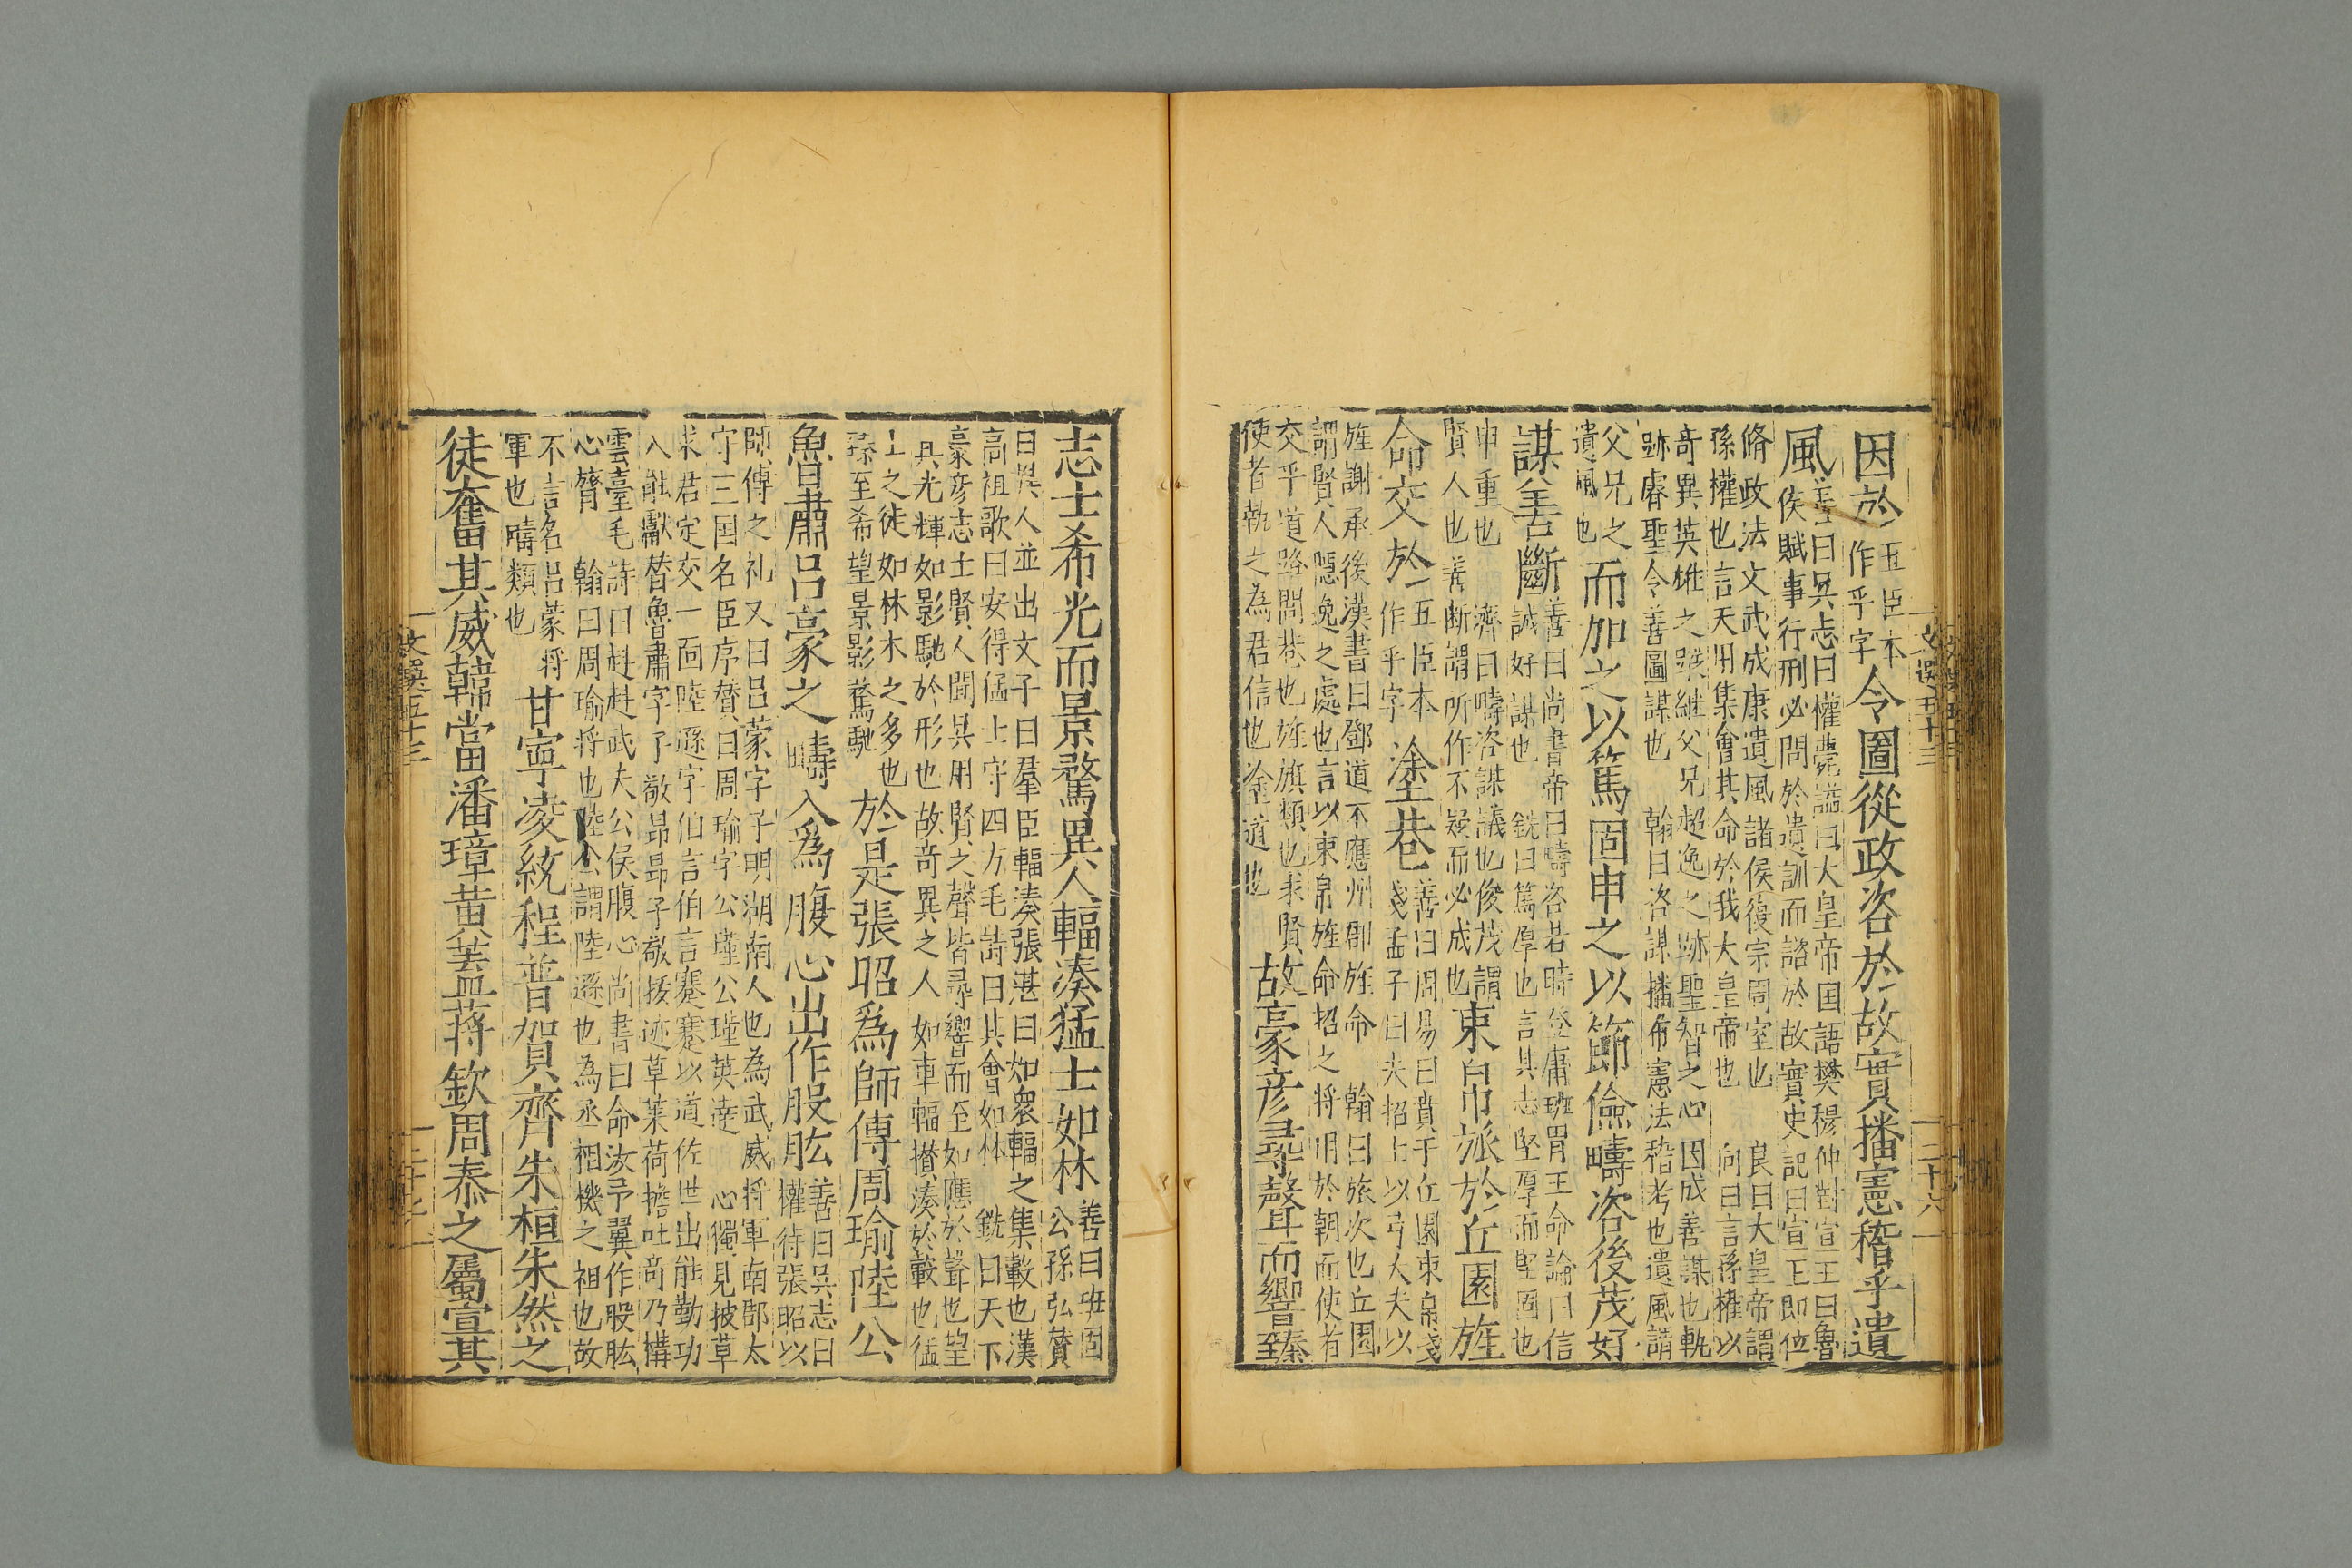 因於五臣本作乎字令圖從政咨於故實播憲稽乎遺
風善曰吳志曰權薨謚曰大皇帝国語樊穆仲對宣王曰魯
侯賦事行刑必問於遺訓而諮於故實史記曰宣王即位
脩政法文武成康遺風諸侯復宗周室也 良曰大皇帝謂
孫權也言天用集會其命於我大皇帝也 向曰言孫權以
奇異英雄之蹤継父兄超逸之跡聖智之心因成善謀也軌
跡睿聖令善圖謀也 翰曰咨謀播布憲法稽考也遺風謂
父兄之
遺風也而加之以篤固申之以節儉疇咨後茂好
謀善斷善曰尚書帝曰疇咨若時登庸班胃王命論曰信
誠好謀也 銑曰篤厚也言其志堅厚而堅固也
申重也 濟曰疇咨謀議也俊茂謂
賢人也善断謂所作不疑而必成也束帛旅於丘園旌
命交於五臣本作乎字塗巷善曰周易曰賁于丘園束帛戔
戔孟子曰夫招士以弓大夫以
旌謝承後漢書曰鄧道不應州郡旌命 翰曰旅次也丘園
謂賢人隱逸之處也言以束帛旌命招之將用於朝而使者
交乎道路閭巷也旌旗類也求賢
使者執之為君信也塗道也故豪彦尋聲而響臻
志士希光而景騖異人輻湊猛士如林善曰班固
公孫弘賛
曰異人並出文子曰羣臣輻湊張湛曰如衆輻之集轂也漢
高祖歌曰安得猛士守四方毛詩曰其會如林 銑曰天下
豪彦志士賢人聞吳用賢之聲皆尋響而至如應於聲也望
其光輝如影馳於形也故奇異之人如車輻攅湊於轂也猛
士之徒如林木之多也
臻至希望景影騖馳於是張昭爲師傅周瑜陸公
魯肅呂蒙之疇入爲腹心出作股肱善曰吳志曰
權待張昭以
師傅之礼又曰呂蒙字子明湖南人也為武威将軍南郡太
守三国名臣序賛曰周瑜字公瑾公瑾英達 心獨見披草
求君定交一面陸遜字伯言伯言蹇蹇以道佐世出能勤功
入能獻替魯肅字子敬昂昂子敬拔迹草萊荷擔吐奇乃構
雲臺毛詩曰赳赳武夫公侯腹心尚書曰命汝予翼作股肱
心膂 翰曰周瑜将也陸公謂陸遜也為丞相機之祖也故
不言名呂蒙将
軍也疇類也甘寧凌統程普賀齊朱桓朱然之
徒奮其威韓當潘璋黄蓋蒋欽周泰之屬宣其
文選五十三
二十六
文選五十三
二十七